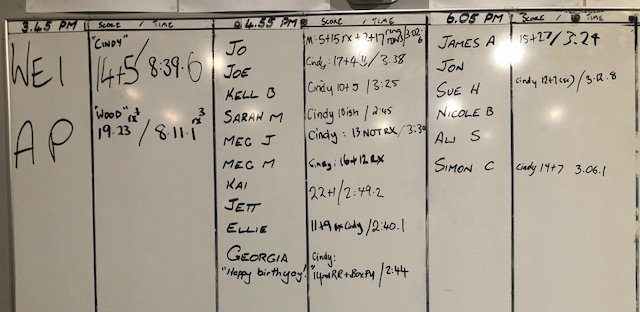 3.45 PM SCORE / TIME
WEI "CINDY" 14+5 / 8:39.6
AP "WOOD" rx 19.23 / 8.11.1
4.55 PM SCORE / TIME
JO M: 5+15 rx +
JOE Cindy: 17+4 / 3.38
KELL B Cindy 10+5 / 3:25
SARAH M Cindy 10ish / 2:45
MEG J Cindy: 13 NOT RX / 3:30
MEG M Cindy: 16+12 RX
KAI 22+1 / 2:49.2
JETT
ELLIE 11+9 rx Cindy / 2:40.1
GEORGIA Cindy:
"Happy birthyay!" 14 RR + Box PU / 2:44
6.05 PM SCORE / TIME
JAMES A 15+27 / 3.24
JON
SUE H Cindy 12+7 / 3.12.8
NICOLE B
ALI S
SIMON C Cindy 14+7 3.06.1